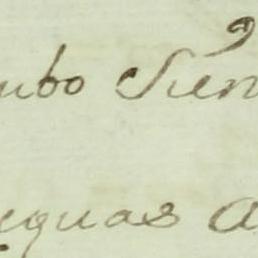 ubo Sien
eguas a